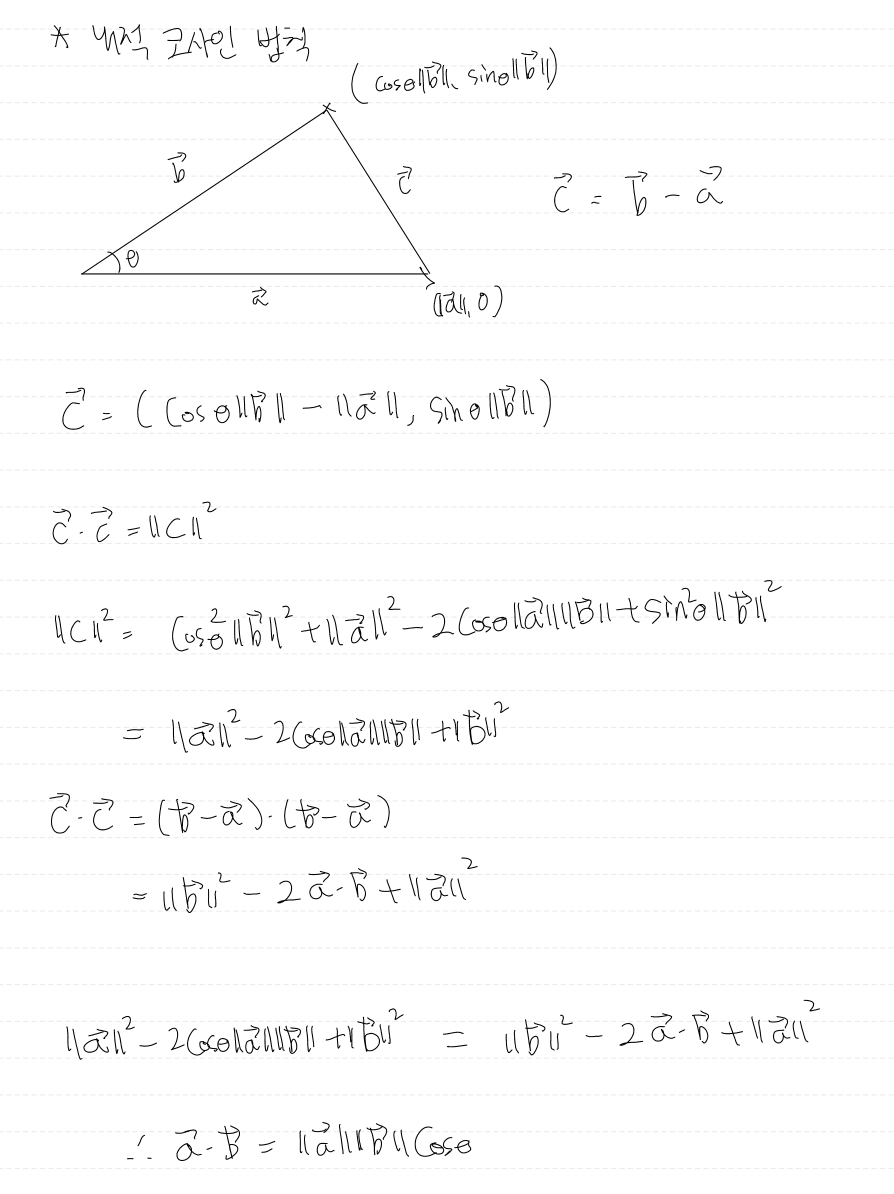 * 내적 코사인 법칙
(cosθ‖b⃗‖, sinθ‖b⃗‖)
b⃗
c⃗
c⃗ = b⃗ - a⃗
θ
a⃗
(‖a⃗‖, 0)
c⃗ = (cosθ‖b⃗‖ - ‖a⃗‖, sinθ‖b⃗‖)
c⃗·c⃗ = ‖c‖²
‖c‖² = cos²θ‖b⃗‖² + ‖a⃗‖² - 2cosθ‖a⃗‖‖b⃗‖ + sin²θ‖b⃗‖²
= ‖a⃗‖² - 2cosθ‖a⃗‖‖b⃗‖ + ‖b⃗‖²
c⃗·c⃗ = (b⃗ - a⃗)·(b⃗ - a⃗)
= ‖b⃗‖² - 2a⃗·b⃗ + ‖a⃗‖²
‖a⃗‖² - 2cosθ‖a⃗‖‖b⃗‖ + ‖b⃗‖² = ‖b⃗‖² - 2a⃗·b⃗ + ‖a⃗‖²
∴ a⃗·b⃗ = ‖a⃗‖‖b⃗‖cosθ